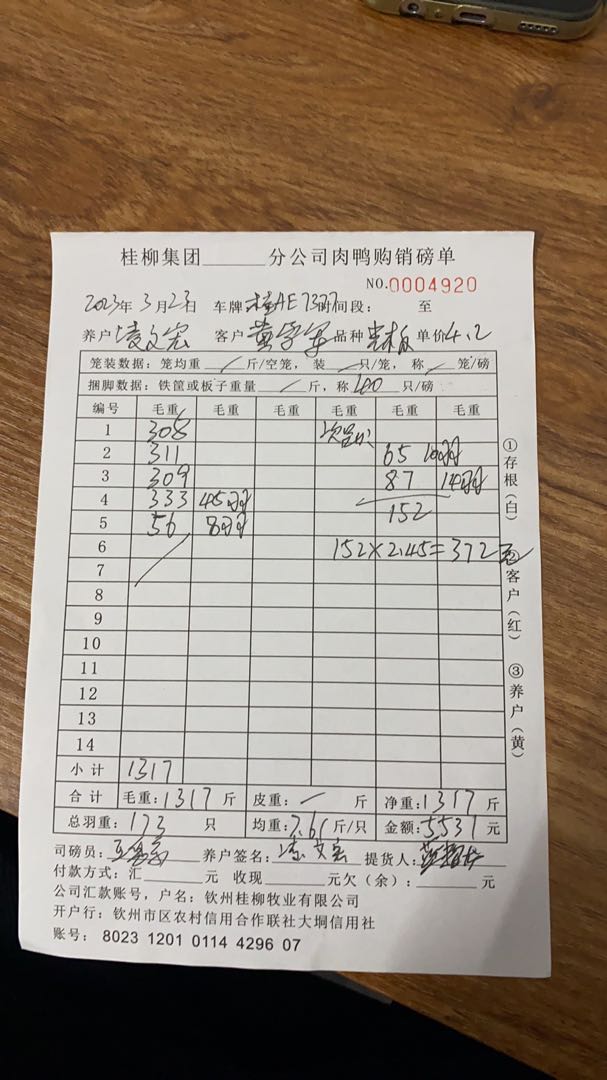 桂柳集团______分公司肉鸭购销磅单
NO.0004920
2023年 3月23日 车牌 桂AE7377 时间段: 至
养户 凌文宏 客户 黄 品种 单价 4.2
笼装数据: 笼均重 / 斤/空笼, 装 / 只/笼, 称 / 笼/磅
捆脚数据: 铁筐或板子重量 / 斤, 称 40 只/磅
编号 毛重 毛重 毛重 毛重 毛重 毛重
1 308
2 311 65 10羽
3 309 87 14羽
4 333 45羽 152
5 56 8羽
6 152×2.45=372元
7
8
9
10
11
12
13
14
小计 1317
合计 毛重: 1317 斤 皮重: / 斤 净重: 1317 斤
总羽重: 173 只 均重: 7.61 斤/只 金额: 5531 元
司磅员: 养户签名: 凌文宏 提货人:
付款方式: 汇______元 收现______元欠(余):______元
公司汇款账号, 户名: 钦州桂柳牧业有限公司
开户行: 钦州市区农村信用合作联社大垌信用社
账号: 8023 1201 0114 4296 07
①存根(白)
②客户(红)
③养户(黄)